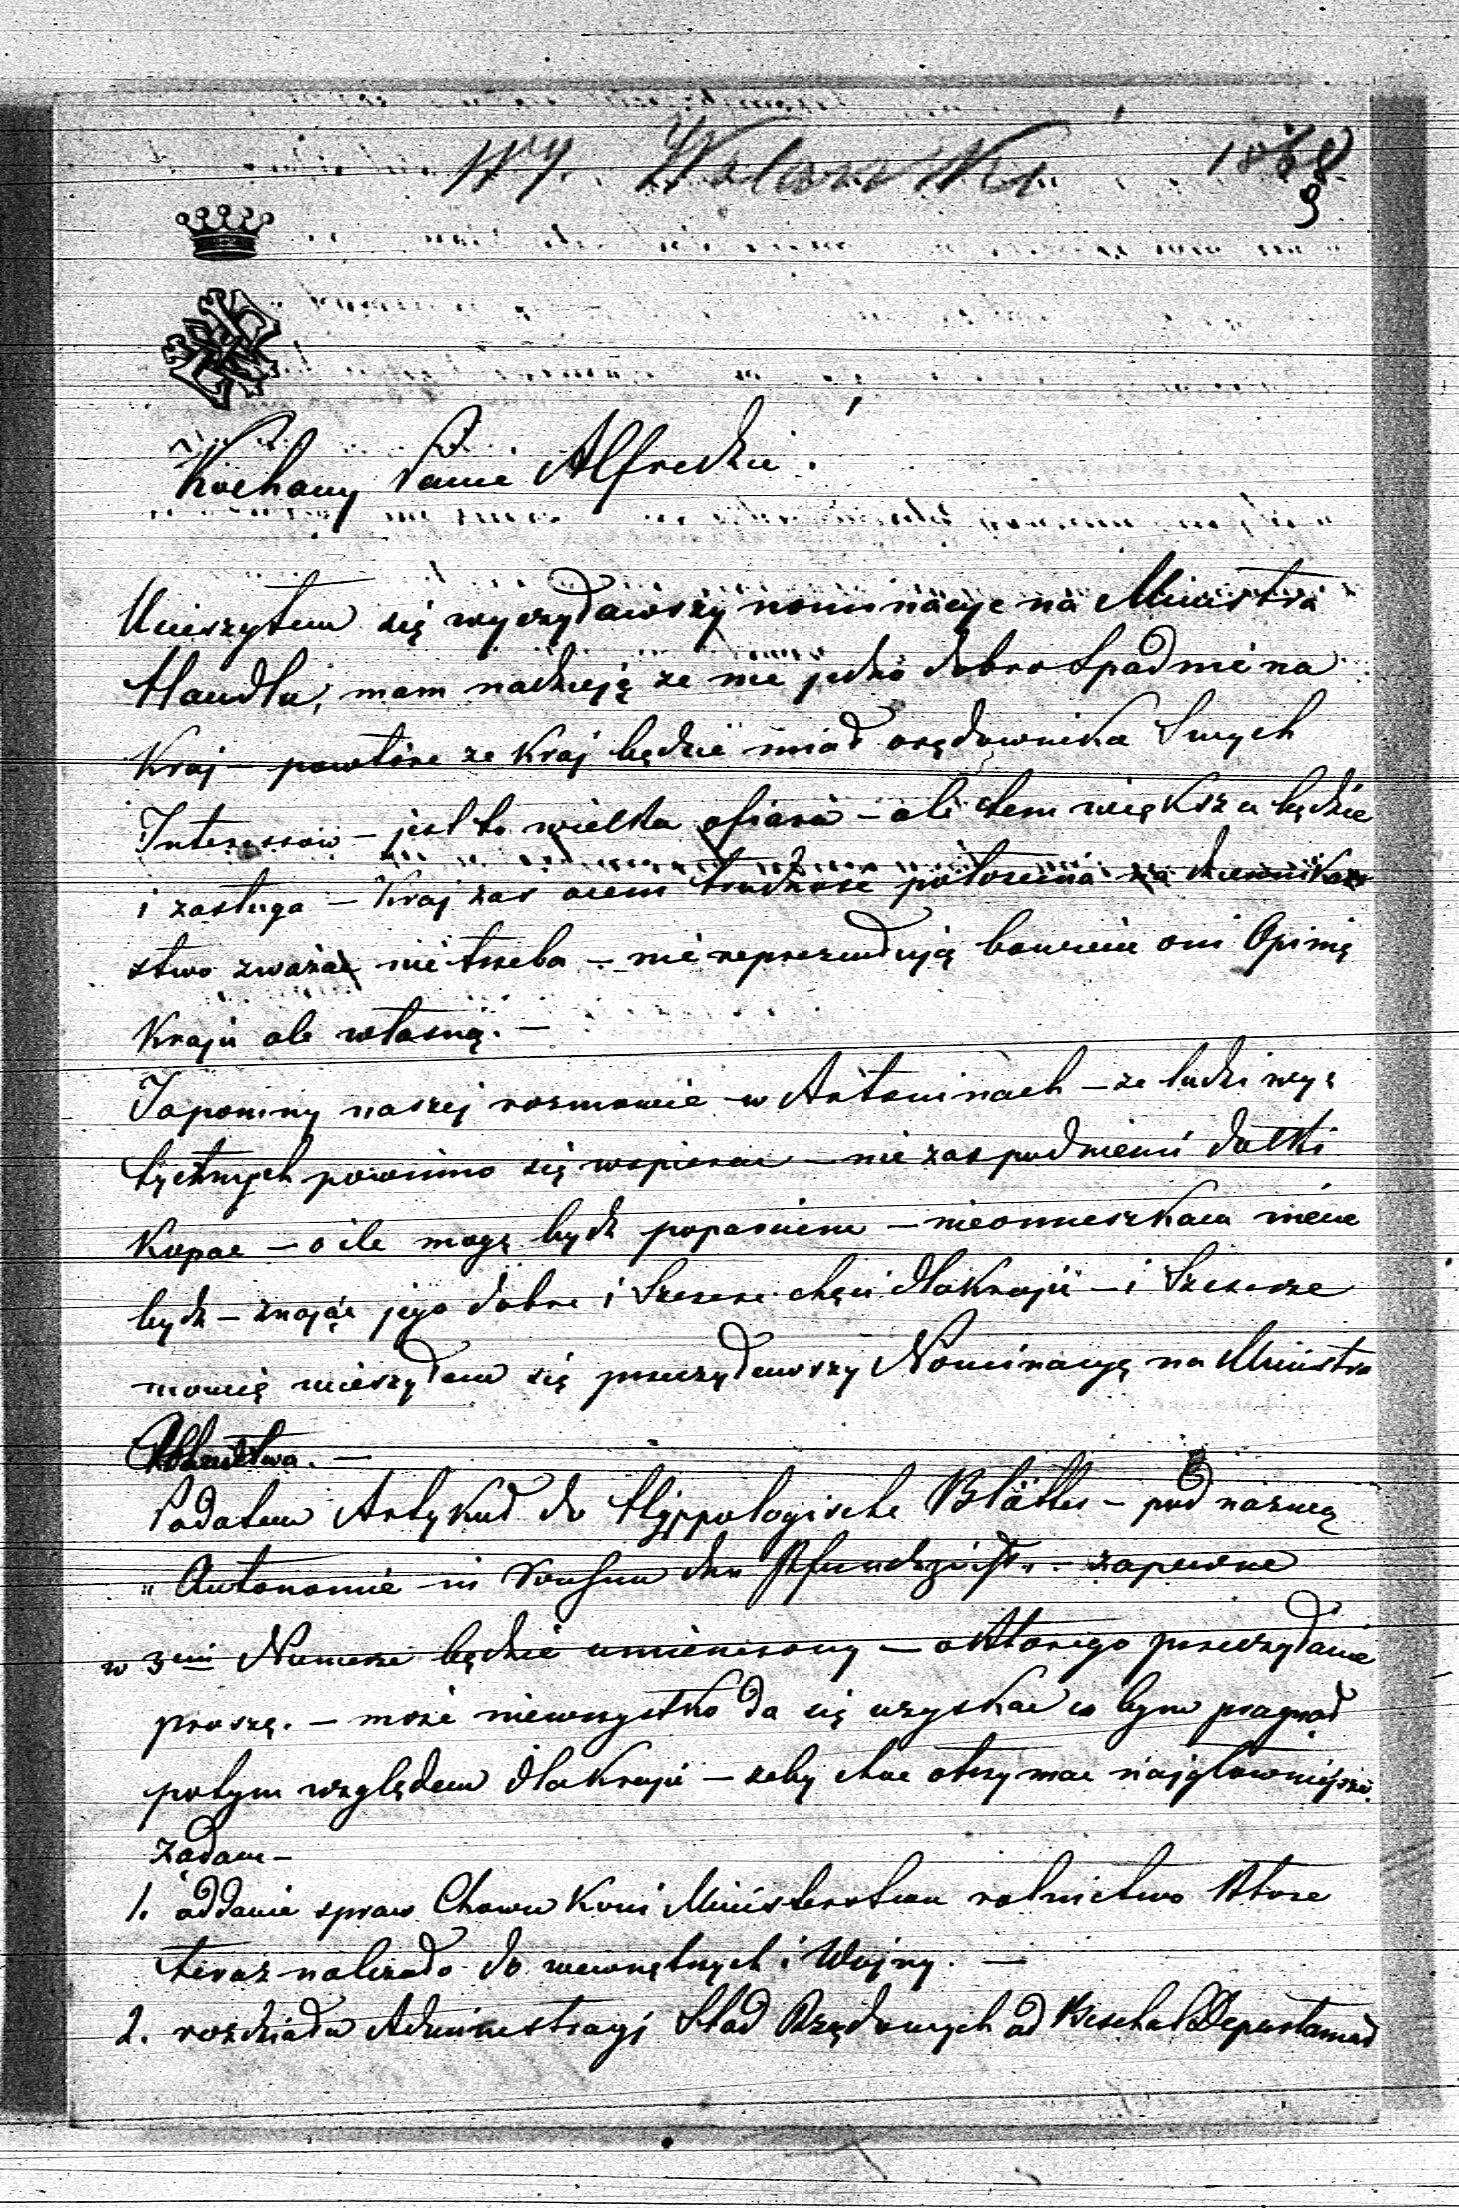 1868
9
Kochany Panie Alfredzie!
Ucieszyłem się wyczytawszy nominacyę na Ministra
Handlu, mam nadzieję ze nie jedno dobro Spadnie na
Kraj — powtóre ze Kraj będzie miał orędownika Swych
Interessów — jest to wielka ofiara — ale tem większa będzie
i zasługa — Kraj zas oceni trudnosc położenia na dziennikar
stwo zważać nie trzeba — nie reprezentują bowiem oni Opinię
Kraju ale własną. —
Zapomny naszej rozmowie w Antoninach — ze ludzi wy
bitnych powinno się wspierac — nie zas pod niemi dołki
Kopac — o ile mogę bydz poparciem — nieomieszkam niem
bydz — znając jego dobre i Szczere chęci dla Kraju — i Szczerze
mowię cieszyłem się przeczytawszy Nominacyę na Ministra
Podałem Artykuł do Hyppologische Blätter — pod nazwą
„Autonomie in der Pferdezucht. — zapewne
w 3cim Numerze będzie umieszczony — o którego przeczytanie
proszę. — może niewszystko da się uzyskać co bym pragnął
potym względem dla Kraju — żeby choc otrzymac najgłowniejsze
żądam —
1. oddanie spraw Chowu Koni Ministerstwu rolnictwa Ktore
teraz należało do wewnętrnych i Wojny. —
2. rozdziału Administracyj Stad Rządowych od Beschäl Departamend